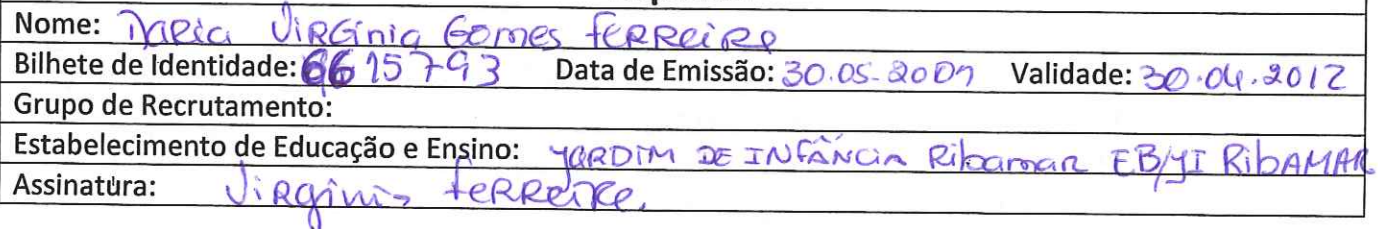 Nome: Maria Virginia Gomes Ferreira
Bilhete de Identidade: 6615793 Data de Emissão: 30.05.2007 Validade: 30.04.2012
Grupo de Recrutamento:
Estabelecimento de Educação e Ensino: JARDIM DE INFÂNCIA Ribamar EB/JI RIBAMAR
Assinatura: Virginia Ferreira